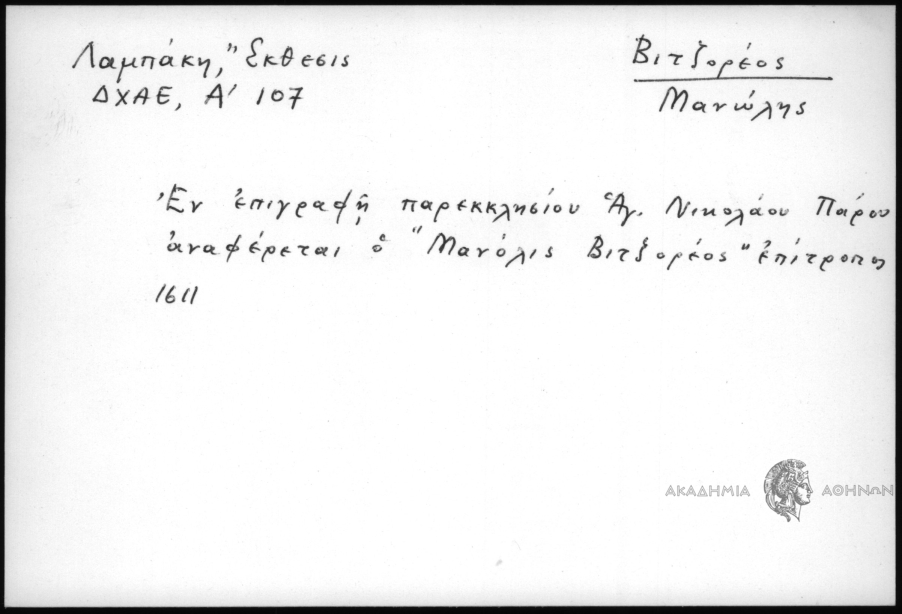 Λαμπάκη, "Εκθεσις
ΔΧΑΕ, Α' 107
Βιτζορέος
Μανώλης
Ἐν ἐπιγραφῇ παρεκκλησίου Ἁγ. Νικολάου Πάρου
ἀναφέρεται ὁ "Μανόλις Βιτξορέος" ἐπίτροπος
1611
ΑΚΑΔΗΜΙΑ ΑΘΗΝΩΝ